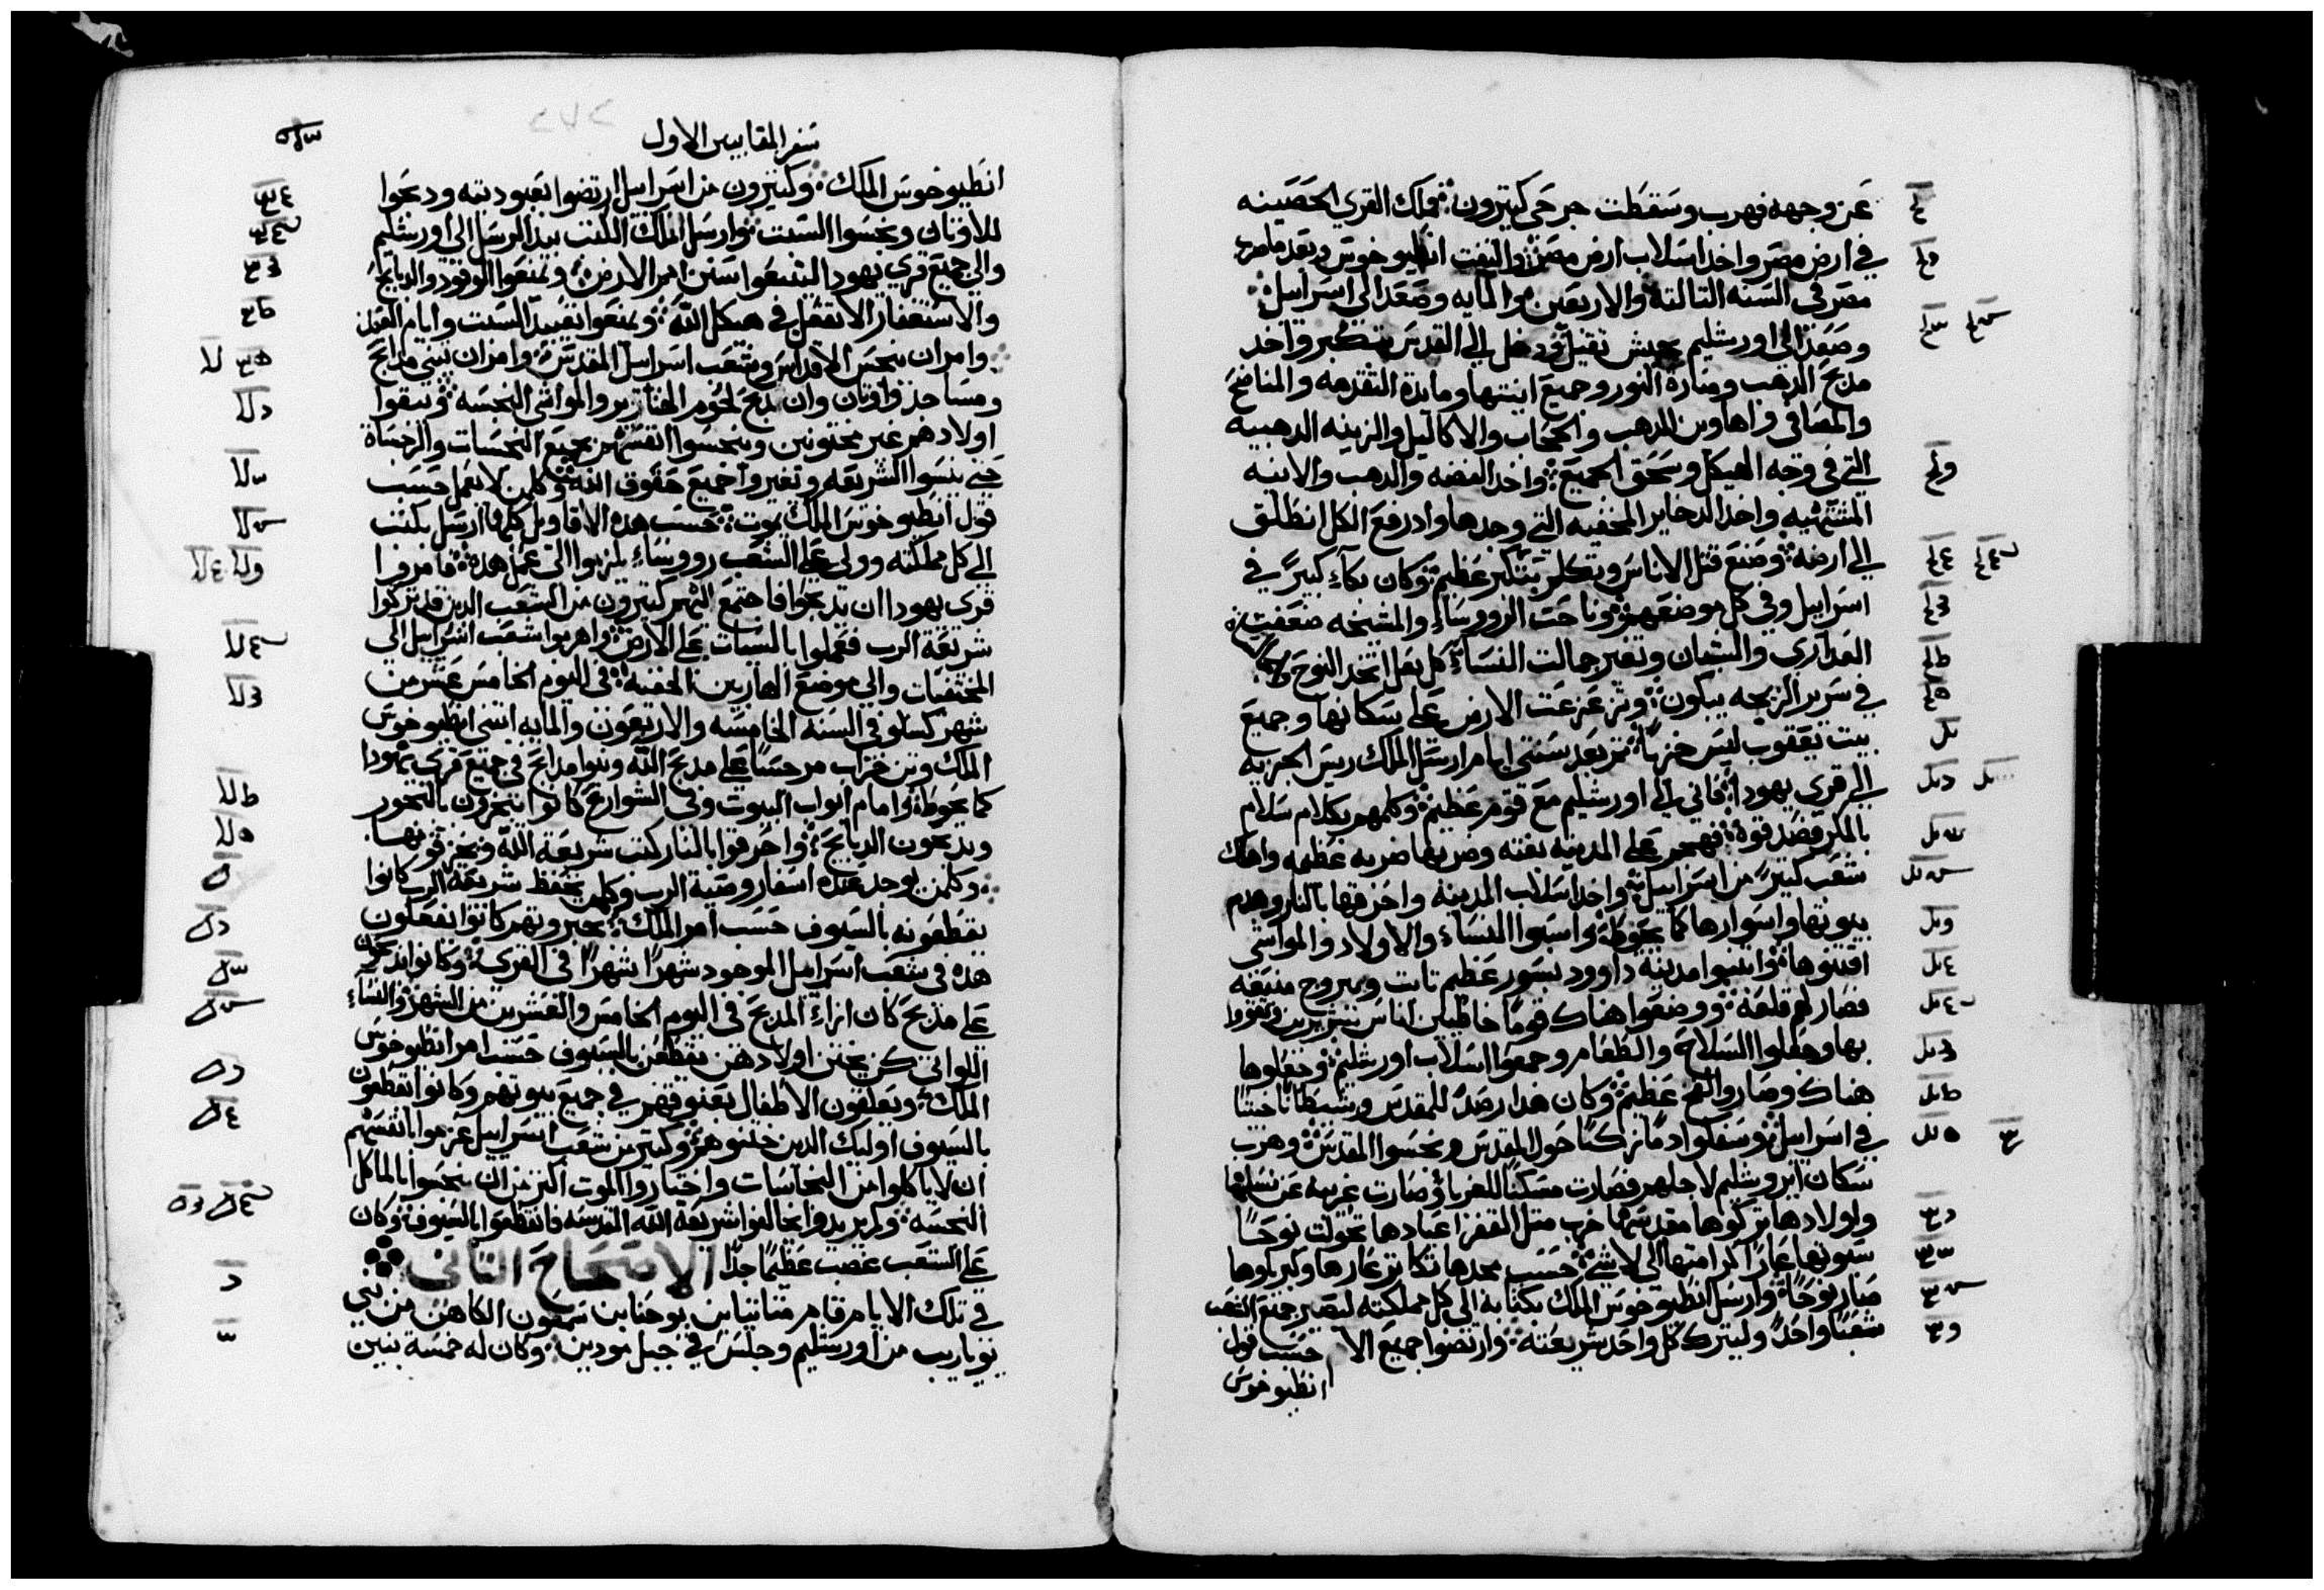 عن وجهه فهرب وسقطت جرحى كتيرون وملك القرى الحصينه
في ارض مصر واخد اسلاب ارض مصر والتفت انطيوخوس وبعد ما ضرب
مصر في السنه التالته والاربعين والمايه وصعد الي اسراييل
وصعد الي اورشليم بجيش تقيل ودخل الي القدس بتكبر واخد
مدبح الدهب ومنارة النور وجميع انيتها ومايدة التقدمه والمنافخ
والمصافي واهاوين الدهب والحجاب والاكاليل والزينه الدهبيه
التي في وجه الهيكل وسحق الجميع واخد الفضه والدهب والانيه
المشتهيه واخد الدخاير المخفيه التي وجدها واد رفع الكل انطلق
الي ارضه وصنع قتل الاناس وتكلم بتكبر عظيم وكان بكاء كبير في
اسراييل وفي كل موضعهم وناحت الرووساء والمشيخه ضعفت
العداري والشبان وتغير جمالت النساء كل بعل اتخد النوح
في سرير الزيجه يبكون وتزعزعت الارض علي سكانها وجميع
بيت يعقوب لبس خزيا تم بعد سنتي ايام ارسل الملك ريس الجزيه
الي قري يهودا فاتي الي اورشليم مع قوم عظيم وكلمهم بكلام سلام
بالمكر فصدقوه فهجم علي المدينه بغته وضربها ضربه عظيمه واهلك
شعب كتير من اسراييل واخد اسلاب المدينه واحرقها بالنار وهدم
بيوتها واسوارها كما يحوطه واسبوا النساء والاولاد والمواشي
اقتنوها وابنيوا مدينه داوود بسور عظيم تابت وببروج منيعه
فصار لهم قلعه ووضعوا هناك قوما خاطيين اناس شريرين وتقووا
بها وجعلوا السلاح والطعام وجمعوا اسلاب اورشليم وجعلوها
هناك وصاروا لفخ عظيم وكان هدا رصد للمقدس وشيطانا خبيتا
في اسراييل وسفكوا دما زكيا حول المقدس ونجسوا المقدس وهرب
سكان ايروشليم لاجلهم فصارت مسكنا للغربا وصارت غريبه عن نسلها
واولادها تركوها مقدسها خرب متل القفر اعيادها تحولت نوحا
سبوتها عارا كرامتها الي لاشي حسب مجدها تكاتر عارها وكبرياوها
صار نوحا وارسل انطيوخوس الملك بكتابه الي كل مملكته ليصير جميع الشعب
شعبا واحد وليترك كل واحد شريعته وارتضوا جميع الا حسب قول
انطيوخوس
سفر المقابيين الاول
انطيوخوس الملك وكتيرون من اسراييل ارتضوا بعبوديته ودبحوا
للاوتان ونجسوا السبت وارسل الملك الكتب بيد الرسل الي اورشليم
والي جميع قري يهودا لتتبعوا سنن امم الارض وتمنعوا الوقود والدبايح
والاستغفار الا تفعل في هيكل الله ويمنعوا تعييد السبت وايام العيد
وامر ان ينجس الاقداس وشعب اسراييل المقدس وامر ان تبني مدابح
ومساجد واوتان وان يدبح لحوم الخنازير والمواشي النجسه ويبقوا
اولادهم غير مختونين وينجسوا انفسهم بجميع النجسات والرجساة
حتي ينسوا الشريعه وتغيروا جميع حقوق الله وكلمن لا يعمل حسب
قول انطيوخوس الملك يموت حسب هده الاقاويل كلها ارسل بكتب
الي كل مملكته وولي علي الشعب رووساء يلزموا الي عمل هده فامروا
قري يهودا ان تدبحوا فاجتمع اليهم كتيرون من الشعب الدين قد تركوا
شريعة الرب فعملوا بالسيات علي الارض واهربوا شعب اسراييل الي
المختفيات والي موضع الهاربين الخفيه في اليوم الخامس عشر من
شهر كسلو في السنه الخامسه والاربعون والمايه ابتني انطيوخوس
الملك وتن خراب مرجسا علي مدبح الله وبنوا مدابح في جميع قري يهودا
كما يحوطه وامام ابواب البيوت وفي الشوارع كانوا يبخرون بالبخور
ويدبحون الدبايح واحرقوا بالنار كتب شريعة الله ويخزقونها
وكلمن يوجد عنده اسفار وصية الرب وكلمن يحفظ شريعة الرب كانوا
يقطعونه بالسيوف حسب امر الملك بجبروتهم كانوا يفعلون
هده في شعب اسراييل الموجود شهرا شهرا في القري وكانوا يدبحون
علي مدبح كان ازاء المدبح في اليوم الخامس والعشرين من الشهر والنساء
اللواتي كن يختن اولادهن يقطعن بالسيوف حسب امر انطيوخوس
الملك ويعلقون الاطفال بعنوقهم في جميع بيوتهم وكانوا يقطعون
بالسيوف اوليك الدين ختنوهم وكتير من شعب اسراييل عزموا بانفسهم
ان لا ياكلوا من النجاسات واختاروا الموت اكتر من ان ينجسوا بالماكل
النجسه ولم يريدوا يخالفوا شريعة الله المقدسه فانقطعوا بالسيوف وكان
علي الشعب غضب عظيما جدا الاصحاح التاني
في تلك الايام قام متاتيا بن يوحنا بن شمعون الكاهن من بني
يوياريب من اورشليم وجلس في جبل مودين وكان له خمسة بنين